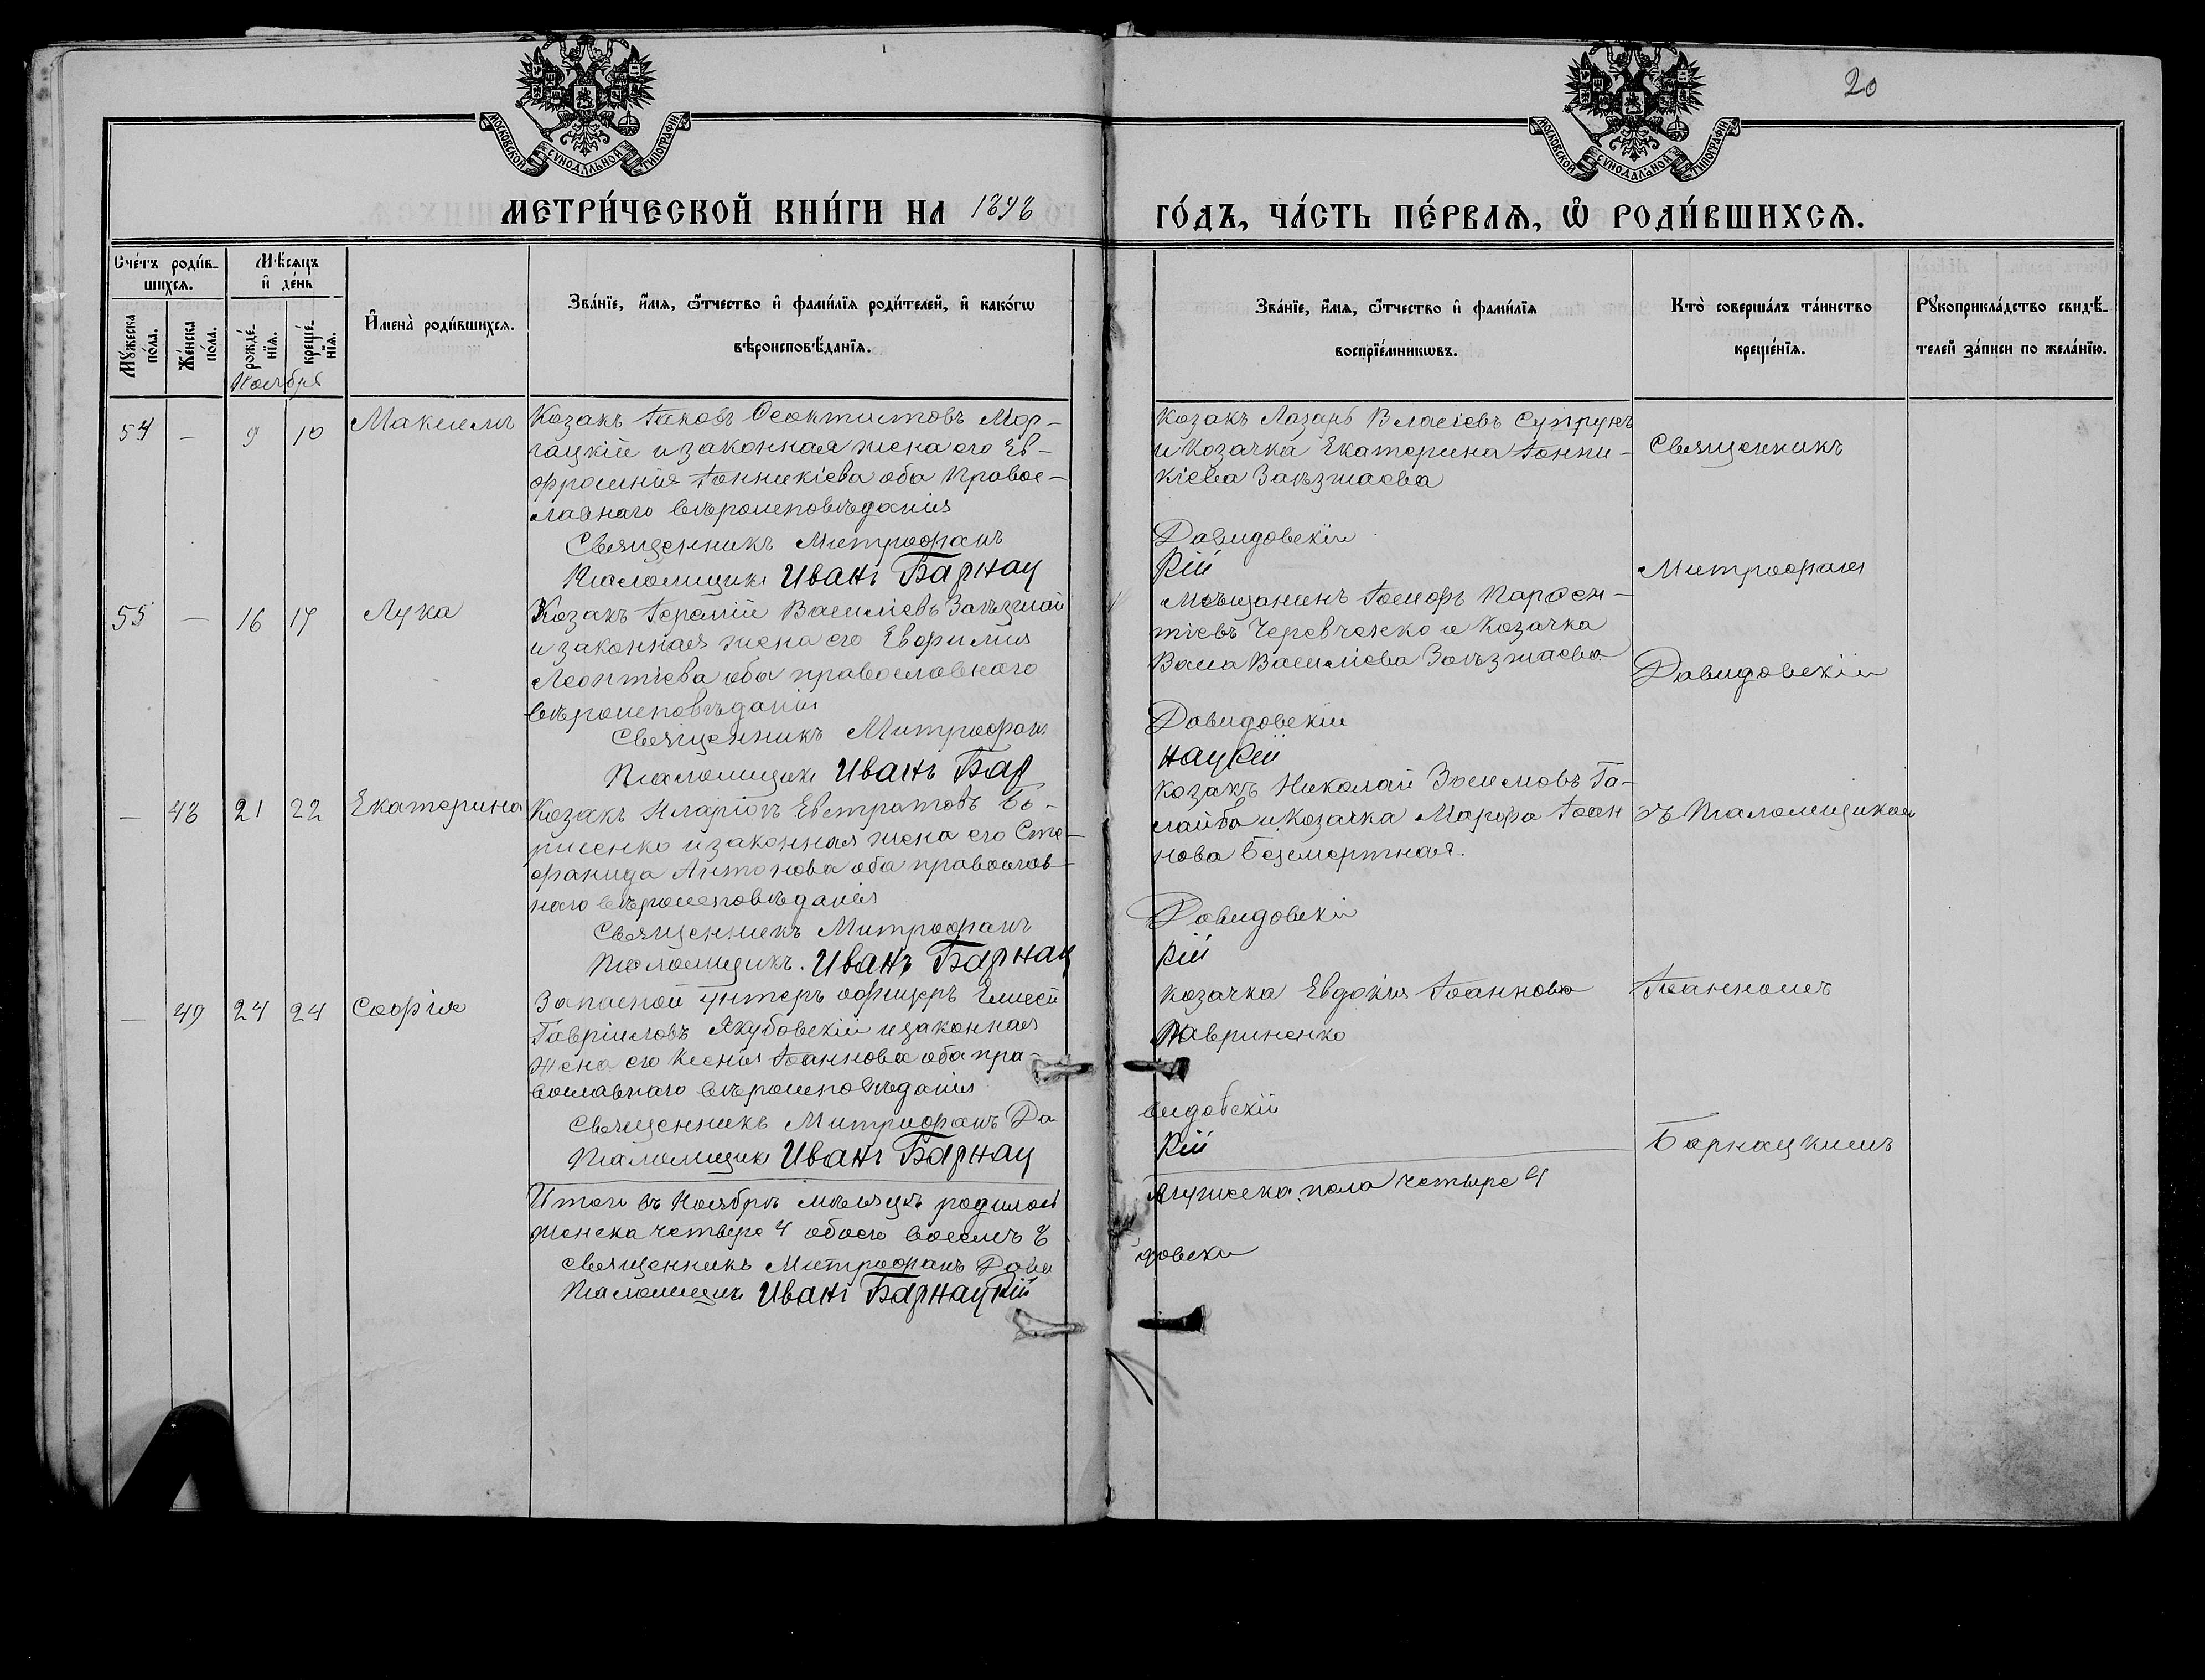 20
МОСКОВСКОЙ СУНОДАЛЬНОЙ ТИПОГРАФІИ
МОСКОВСКОЙ СУНОДАЛЬНОЙ ТИПОГРАФІИ
МЕТРИ́ЧЕСКОЙ КНИ́ГИ НА 1898
ГО́ДЪ, ЧА́СТЬ ПЕ́РВАѦ, Ѡ҆ РОДИ́ВШИХСѦ.
Сче́тъ роди́в-
шихся.
Мꙋжеска по́ла.
Же́нска по́ла.
Мѣ́сяцъ
и҆ де́нь
рожде́-
нїя.
креще́-
нїя.
Ноября
И҆мена̀ роди́вшихся.
Зва́нїе, и҆́мя, ѻ҆́тчество и҆ фами́лїя роди́телей, и҆ како́гѡ
вѣроисповѣ́данїя.
Зва́нїе, и҆́мя, ѻ҆́тчество и҆ фами́лїя
воспрїе́мникѡвъ.
Кто̀ соверша́лъ та́инство
креще́нїя.
Рꙋкоприкла́дство свидѣ́-
телей за́писи по жела́нїю.
54 — 9 10 Максимъ
Козакъ Іаковъ Ѳеоктистовъ Мор-
гацкій и законная жена его Ев-
фросинія Іонникіева оба Правос-
лавнаго вѣроисповѣданія
Священникъ Митрофанъ
Псаломщикъ Иванъ Барнац
Козакъ Лазарь Власіевъ Супрунъ
и Козачка Екатерина Іонни-
кіева Заѣзжаева
Давидовскій
кій
Священникъ
Митрофан
55 — 16 17 Лука
Козакъ Іеремій Василіевъ Заѣзжай
и законная жена его Евфимія
Леонтіева оба православнаго
вѣроисповѣданія
Священникъ Митрофанъ
Псаломщикъ Иванъ Бар
Мѣщанинъ Іосифъ Парѳен-
тіевъ Черевченко и Козачка
Васса Василіева Заѣзжаева
Давидовскій
нацкій
Давидовскій
— 48 21 22 Екатерина
Козакъ Иларіонъ Евстратовъ Бо-
рисенко и законная жена его Сте-
фанида Антонова оба православ-
наго вѣроисповѣданія
Священникъ Митрофанъ
Псаломщикъ. Иванъ Барнац
Козакъ Николай Зосимовъ Га-
лайба и Козачка Марфа Іоан
нова Безсмертная.
Давидовскі
кій
съ Псаломщикомъ
— 49 24 24 Софія
Запасной унтеръ офицеръ Елисей
Гавріиловъ Якубовскій и законная
жена его Ксенія Іоаннова оба пра-
вославнаго вѣроисповѣданія
Священникъ Митрофанъ Да
Псаломщикъ Иванъ Барнац
козачка Евдокія Іоаннова
Лавриненко
видовскій
кій
Іоанномъ
Барнацкимъ
Итого въ Ноябрѣ мѣсяцѣ родилось
женска четыре 4 обоего восемь 8
Священникъ Митрофанъ Дави
Псаломщикъ Иванъ Барнацкій
Мужеска пола четыре 4
довскі